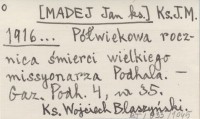 [MADEJ Jan ks.] Ks. J. M.
1916... Półwiekowa rocz-
nica śmierci wielkiego
missyonarza Podhala. —
Gaz. Podh. 4, nr 35.
Ks. Wojciech Blaszyński.